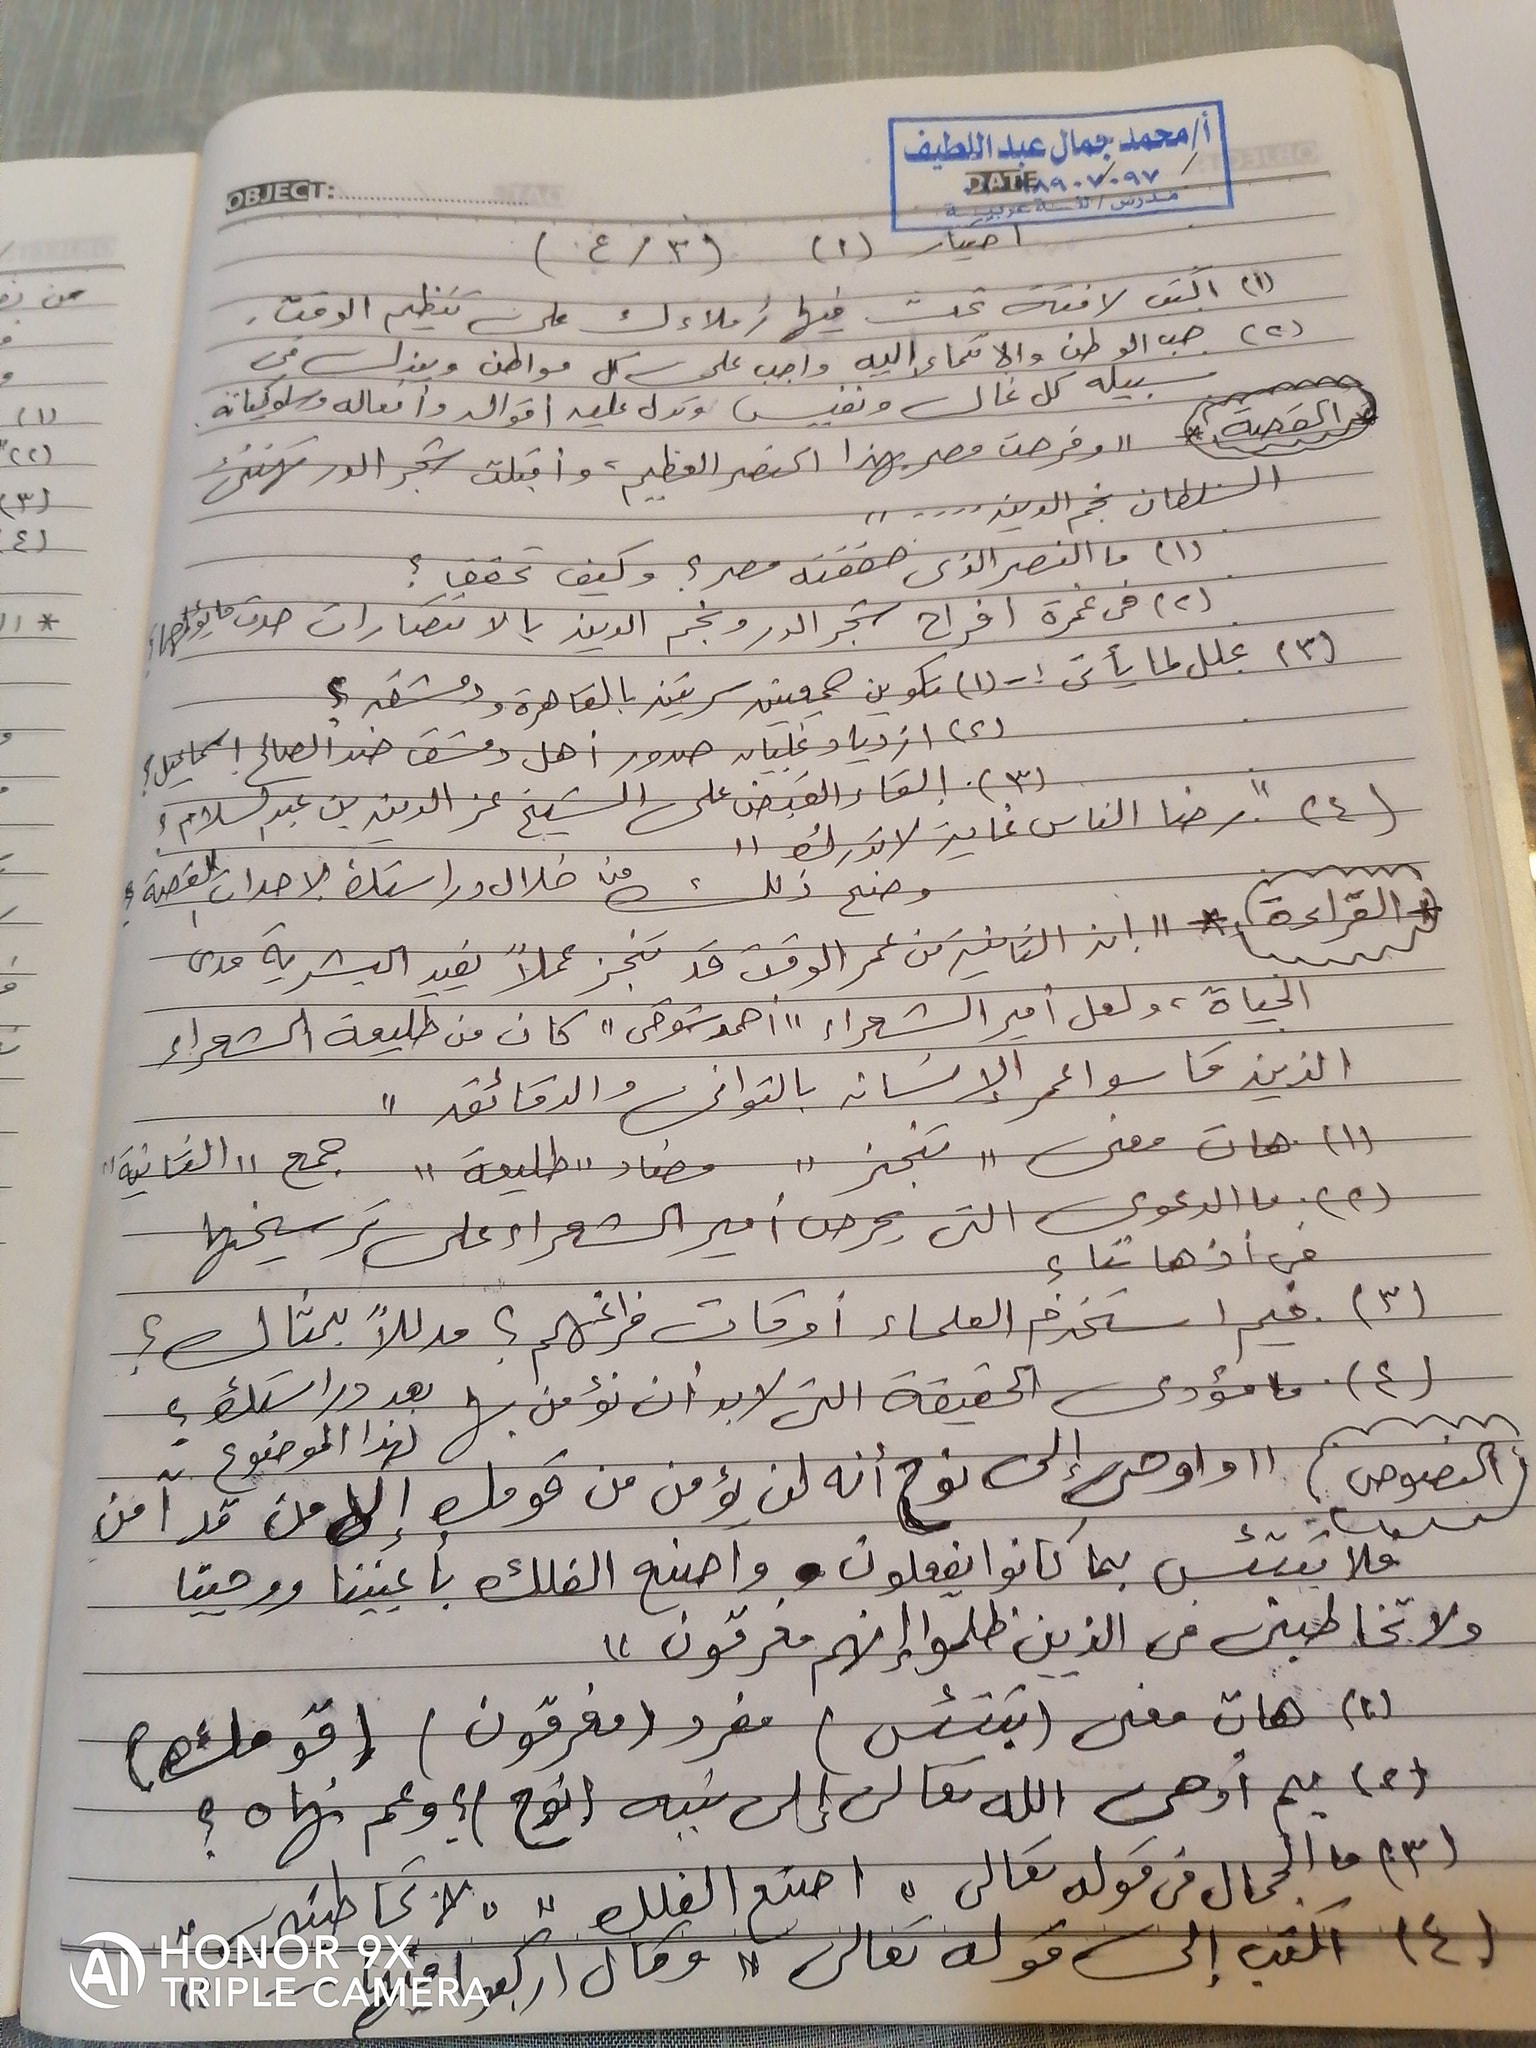 أ/محمد جمال عبد اللطيف
OBJECT:
DATE
مدرس / لغة عربية
اختبار (١) (٣ / ٤)
(١) اكتب لافتة تحث فيها زملاءك على تنظيم الوقت.
(٢) حب الوطن والانتماء إليه واجب على كل مواطن ويبذل في
سبيله كل غال ونفيس وتدل عليه أقواله وأفعاله وسلوكياته.
* القصة * " وفرحت مصر بهذا النصر العظيم، وأقبلت شجر الدر تهنئ
السلطان نجم الدين .... "
(١) ما النصر الذى حققته مصر؟ وكيف تحقق؟
(٢) فى غمرة أفراح شجر الدر ونجم الدين بالانتصارات حدث ما يؤلمها؟
(٣) علل لما يأتى :- (١) تكوين جمعيتين سريتين بالقاهرة ودمشق؟
(٢) ازدياد غليان صدور أهل دمشق ضد الصالح إسماعيل؟
(٣) إلقاء القبض على الشيخ عز الدين بن عبد السلام؟
(٤) " رضا الناس غاية لا تدرك "
وضح ذلك من خلال دراستك لأحداث القصة؟
* القراءة * " إن الثانية من عمر الوقت قد تنجز عملاً يفيد البشرية مدى
الحياة، ولعل أمير الشعراء "أحمد شوقى" كان من طليعة الشعراء
الذين قاسوا عمر الإنسان بالثوانى والدقائق "
(١) هات معنى " تنجز " مضاد "طليعة" جمع "الثانية"
(٢) ما الدعوى التى يحرص أمير الشعراء على ترسيخها
فى أذهاننا؟
(٣) فيم استخدم العلماء أوقات فراغهم؟ مدللاً بمثال؟
(٤) ما مؤدى الحقيقة التى لابد أن نؤمن بها بعد دراستك
لهذا الموضوع؟
النصوص " واوحى إلى نوح أنه لن يؤمن من قومك إلا من قد آمن
فلا تبتئس بما كانوا يفعلون واصنع الفلك بأعيننا ووحينا
ولا تخاطبنى فى الذين ظلموا إنهم مغرقون "
(١) هات معنى (تبتئس) مفرد (مغرقون) (قومك)
(٢) بم أوحى الله تعالى إلى نبيه (نوح)؟ وعم نهاه؟
(٣) ما الجمال فى قوله تعالى " اصنع الفلك " " لا تخاطبنى "
(٤) اكتب إلى قوله تعالى " وقال اركبوا فيها "
HONOR 9X
TRIPLE CAMERA
(١)
(٢)
(٣)
(٤)